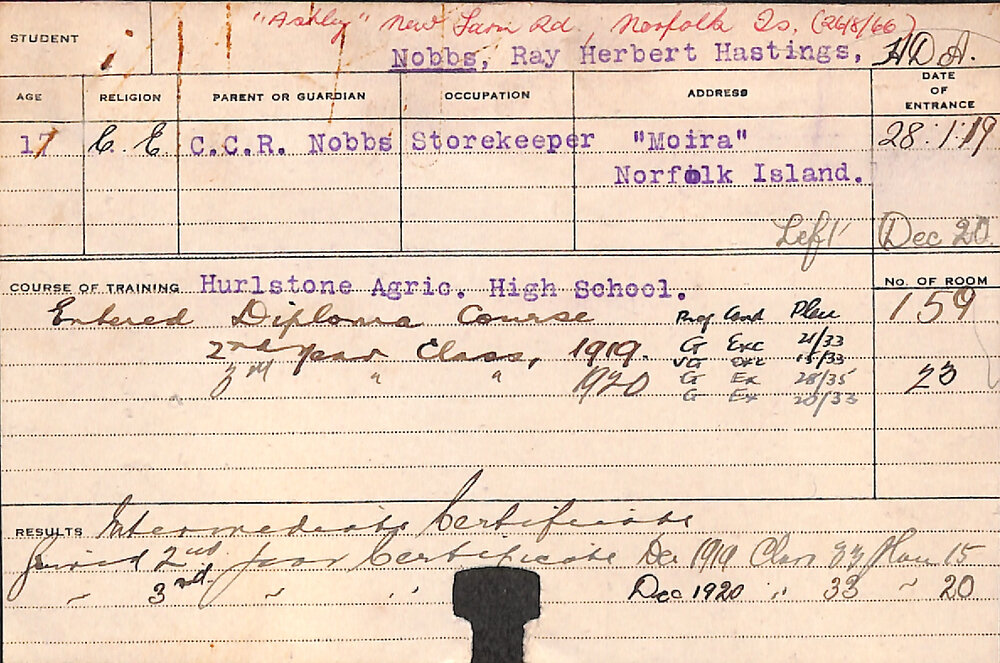 "Ashby" New Farm Rd, Norfolk Is. (26/8/66)
STUDENT Nobbs, Ray Herbert Hastings, H.D.A.
AGE RELIGION PARENT OR GUARDIAN OCCUPATION ADDRESS DATE OF ENTRANCE
17 C. E. C.C.R. Nobbs Storekeeper "Moira" 28:1:19
Norfolk Island.
Left Dec 20
COURSE OF TRAINING Hurlstone Agric. High School. No. OF ROOM
Entered Diploma Course Prof Cond Place 159
2nd year Class, 1919. G Exc 21/33
VG Exc 15/33
3rd " " 1920 G Ex 28/35 23
G Ex 20/33
RESULTS Intermediate Certificate
Gained 2nd year Certificate Dec 1919 Class 33 Place 15
" 3rd. " " Dec 1920 " 33 " 20